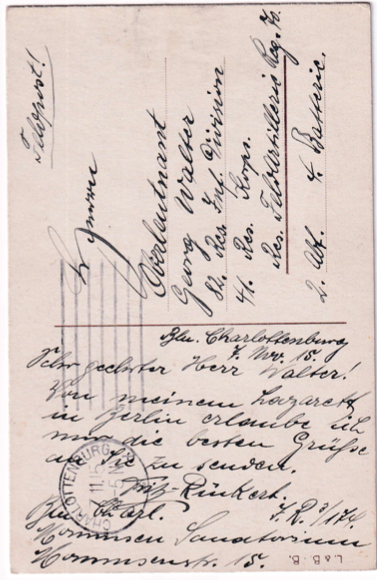 Feldpost!
Herrn
Oberleutnant
Georg Walter
82. Res. Inf. Division
41. Res. Korps.
Res. Feldartillerie Reg. 70.
2. Abt. 4. Batterie.
Bln. Charlottenburg
7. Nov. 15.
Sehr geehrter Herr Walter!
Von meinem Lazarett
in Berlin erlaube ich
mir die besten Grüße
an Sie zu senden.
Fritz Rückert.
I.R. 3/174.
Bln. Charl.
Mommsen Sanatorium
Mommsenstr. 15.
CHARLOTTENBURG
7.11.15
L. & B. B.